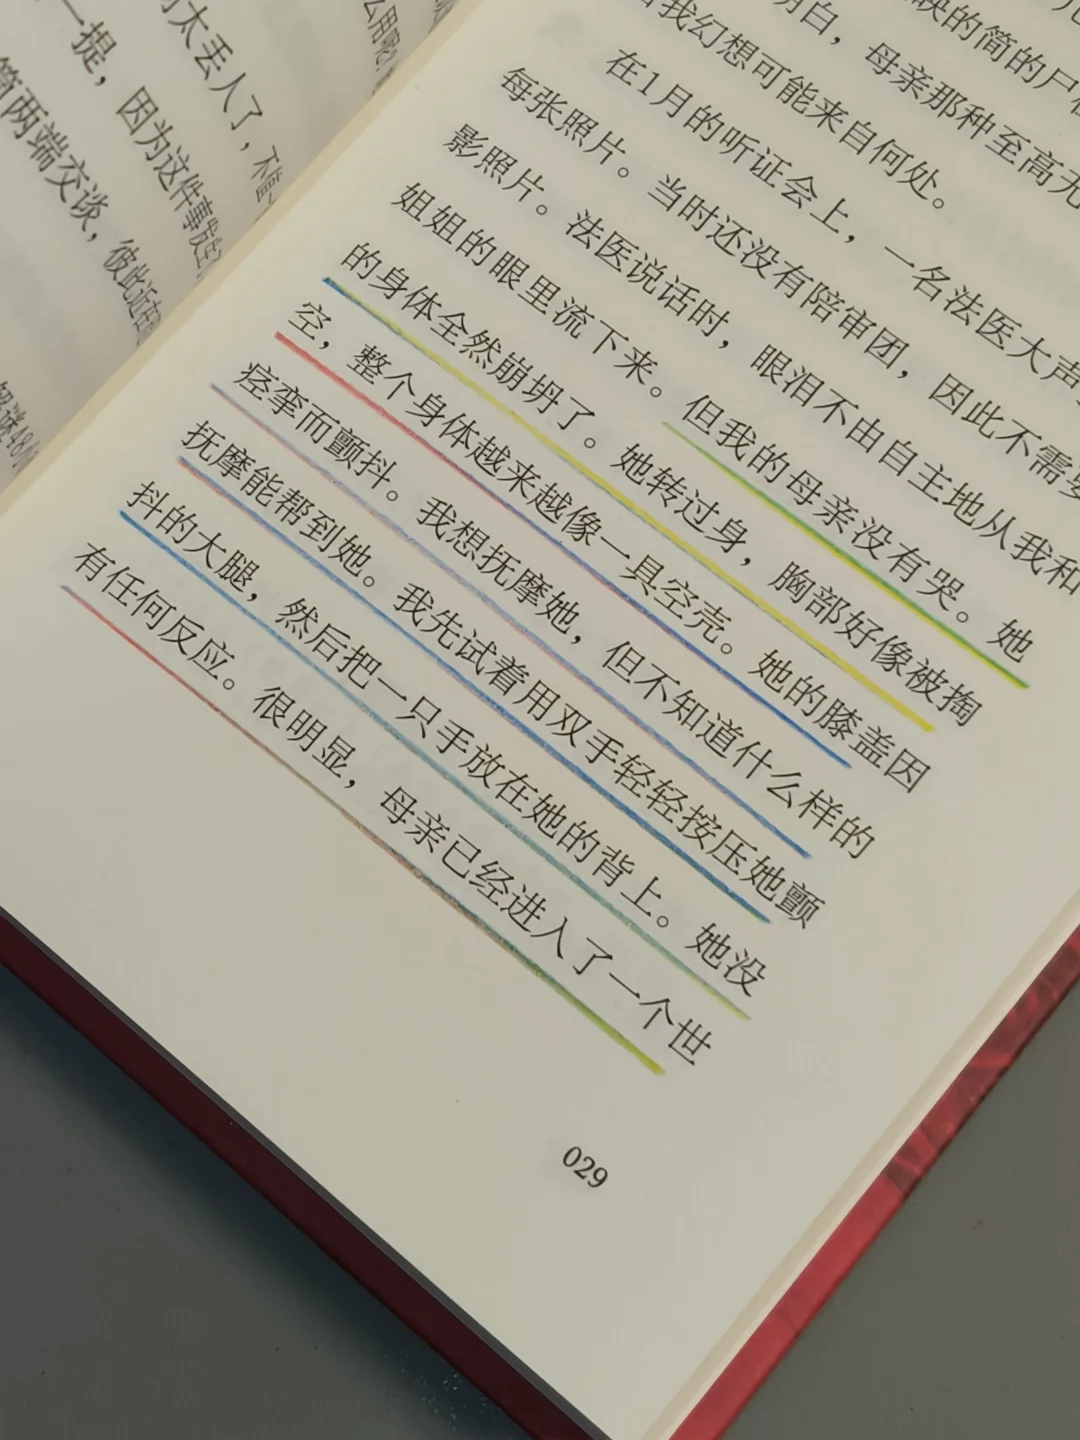 太丢人了，
一提，因为这件事发生
筒两端交谈，彼此近在
么用呢？
解谜48小
缺的简的尸
明白，母亲那种至高无
我幻想可能来自何处。
在1月的听证会上，一名法医大声
每张照片。当时还没有陪审团，因此不需要
影照片。法医说话时，眼泪不由自主地从我和
姐姐的眼里流下来。但我的母亲没有哭。她
的身体全然崩坍了。她转过身，胸部好像被掏
空，整个身体越来越像一具空壳。她的膝盖因
痉挛而颤抖。我想抚摩她，但不知道什么样的
抚摩能帮到她。我先试着用双手轻轻按压她颤
抖的大腿，然后把一只手放在她的背上。她没
有任何反应。很明显，母亲已经进入了一个世
029